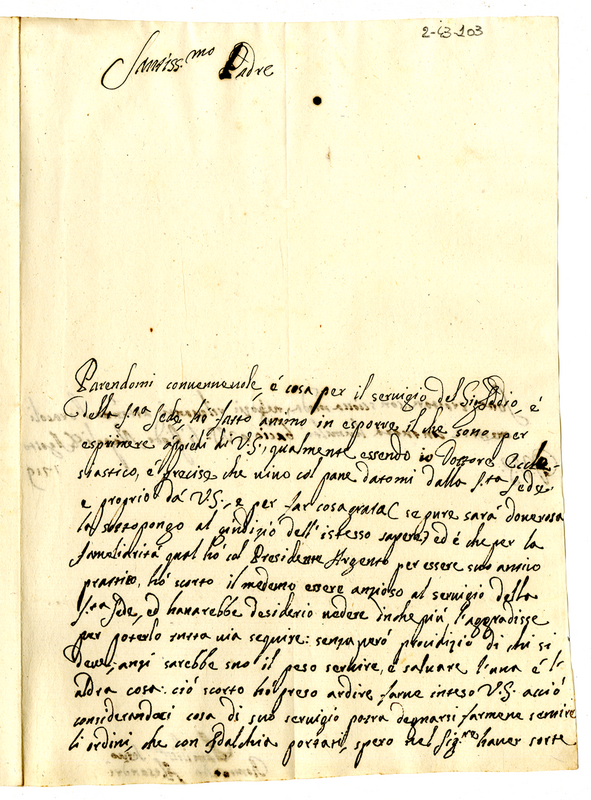 2-63-103
Santiss.mo Padre
Parendomi convennevole, é cosa per il servigio del Sig.e Dio, é
della S.ta Sede, hò fatto animo in esporre il che sono per
esprimere a'piedi di V.S., qualmente essendo io Dottore Eccle-
siastico, e precise che vivo col pane datomi dalla S.ta Sede
e proprio da V.S., e per far cosa grata (se pure sarà doverosa
lo sottopongo al giudizio dell'istesso sapere) ed é che per la
fameliarità qual hò col Presidente Argento per essere suo amico
prattico, hò scorto il medemo essere anzioso al servigio della
S.ta Sede, ed havarebbe desiderio vedere in che più l'aggradisse
per poterlo tutta via seguire: senza però preiudizio di chi si
deve, anzi sarebbe suo il peso servire, e salvare l'una é l'
altra cosa. ciò scorto hò preso ardire farne inteso V.S. acciò
considerandoci cosa di suo servigio potrà degnarsi farmene servire
li ordini, che con portari, spero nel Sig.re haver sorte